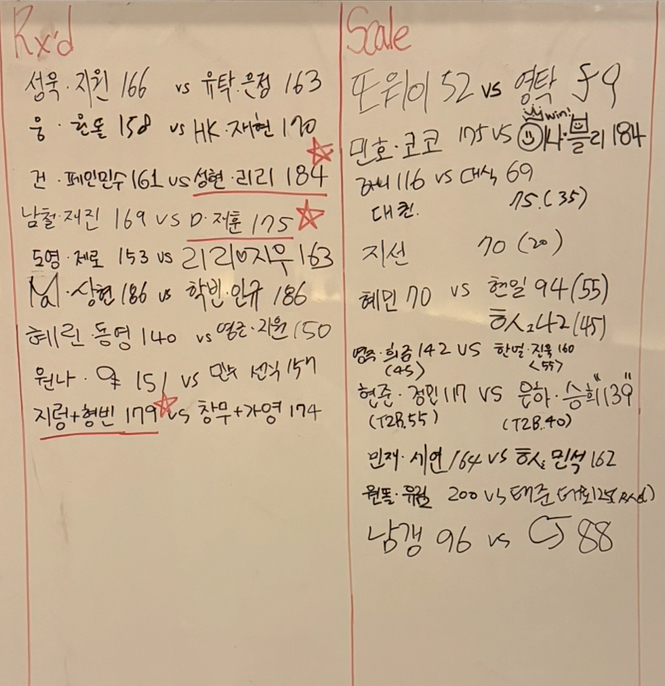 Rx'd
성욱·지원 166 vs 유탁·은정 163
웅·윤돌 158 vs HK·재현 170
건·페인민수 161 vs 성현·리리 184
남철·재진 169 vs D·재훈 175
도영·제로 153 vs 리리♡지우 163
M·상현 186 vs 학빈·인규 186
혜린 동영 140 vs 영근·지원 150
원나· 151 vs 민수 선식 157
지렁+형빈 179 vs 창무+가영 174
Scale
또위이 52 vs 영탁 59
win!
민호·코코 175 vs 사·블리 184
116 vs 대식 69
75.(35)
지선 70 (20)
혜민 70 vs 현일 94 (55)
42 (45)
희금 142 vs 한별·진욱 160
(45) (55)
현준·경민 117 vs 은하·승희 "139"
(T2B.55) (T2B.40)
민재·세연 164 vs 민석 162
200 vs 태준
남갱 96 vs CJ 88